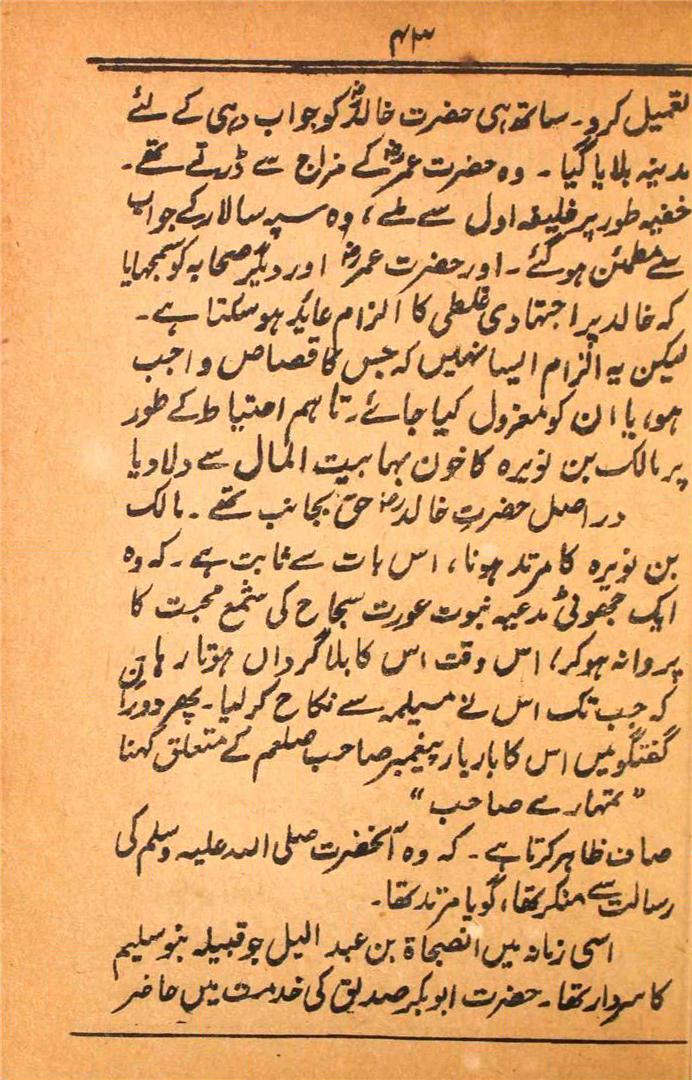 ۴۳
تعمیل کرو۔ ساتھ ہی حضرت خالدؓ کو جواب دہی کے لئے
مدینہ بلایا گیا۔ وہ حضرت عمرؓ کے مزاج سے ڈرتے تھے۔
خفیہ طور پر خلیفہ اول سے ملے، وہ سپہ سالار کے جواب
سے مطمئن ہو گئے۔ اور حضرت عمرؓ اور دیگر صحابہ کو سمجھایا
کہ خالد پر اجتہادی غلطی کا الزام عاید ہو سکتا ہے۔
لیکن یہ الزام ایسا نہیں کہ جس کا قصاص واجب
ہو، یا ان کو معزول کیا جائے۔ تاہم احتیاط کے طور
پر مالک بن نویرہ کا خون بہا بیت المال سے دلا دیا
در اصل حضرت خالدؓ حق بجانب تھے۔ مالک
بن نویرہ کا مرتد ہونا، اس بات سے ثابت ہے۔ کہ وہ
ایک جھوٹی مدعیہ نبوت عورت سجاح کی شمع محبت کا
پروانہ ہو کر، اس وقت اس کا بلا گرداں ہوتا رہا
کہ جب تک اس نے مسیلمہ سے نکاح کر لیا۔ پھر دوران
گفتگو میں اس کا بار بار پیغمبر صاحب صلعم کے متعلق کہنا
"تمہارے صاحب"
صاف ظاہر کرتا ہے۔ کہ وہ آنحضرت صلی اللہ علیہ وسلم کی
رسالت سے منکر تھا، گویا مرتد تھا۔
اسی زمانہ میں انصجاۃ بن عبد الیل جو قبیلہ بنو سلیم
کا سردار تھا۔ حضرت ابوبکر صدیق کی خدمت میں حاضر